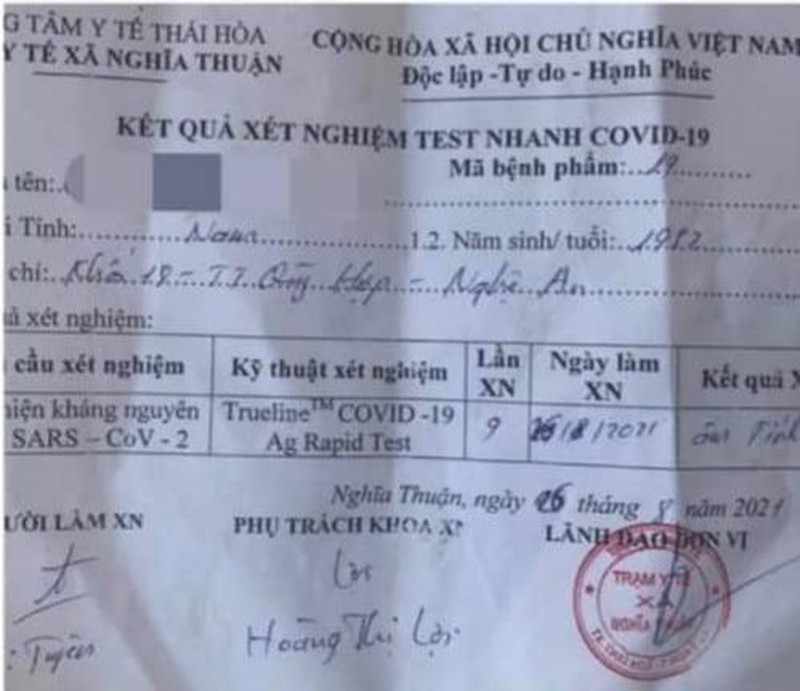 G TÂM Y TẾ THÁI HÒA
Y TẾ XÃ NGHĨA THUẬN
CỘNG HÒA XÃ HỘI CHỦ NGHĨA VIỆT NAM
Độc lập -Tự do - Hạnh Phúc
KẾT QUẢ XÉT NGHIỆM TEST NHANH COVID-19
Mã bệnh phẩm:...19.........
tên:..
i Tính:........Nam.............1.2. Năm sinh/ tuổi:..1982
chỉ:..Khối 18 - T.T. Quỳ Hợp - Nghệ An
ả xét nghiệm:
cầu xét nghiệm Kỹ thuật xét nghiệm Lần XN Ngày làm XN Kết quả X
hiện kháng nguyên SARS – CoV - 2 Trueline™ COVID -19 Ag Rapid Test 9 26/8/2021 âm Tính
Nghĩa Thuận, ngày 26 tháng 8 năm 2021
ƯỜI LÀM XN PHỤ TRÁCH KHOA XN LÃNH ĐẠO ĐƠN VỊ
TRẠM Y TẾ
XÃ
NGHĨA THUẬN
Lợi
Tuyên
Hoàng Thị Lợi